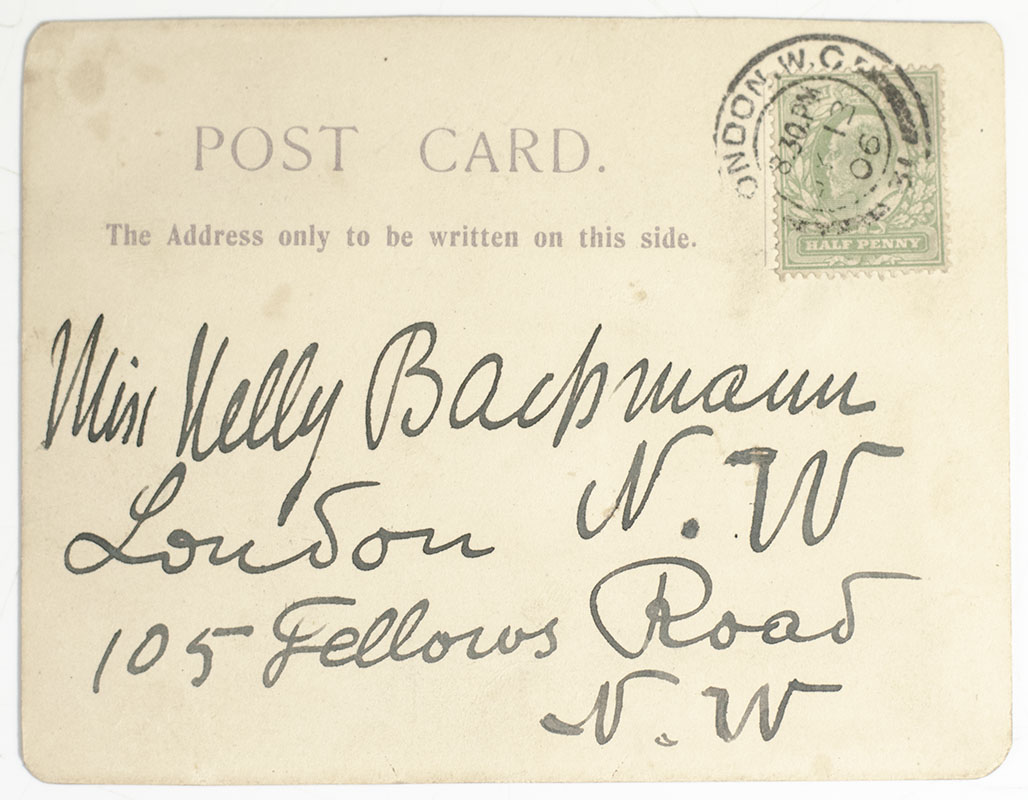 POST CARD.
The Address only to be written on this side.
LONDON. W.C.
8.30.PM
06
HALF PENNY
Miss Nelly Bachmann
London N.W
105 Fellows Road
N.W